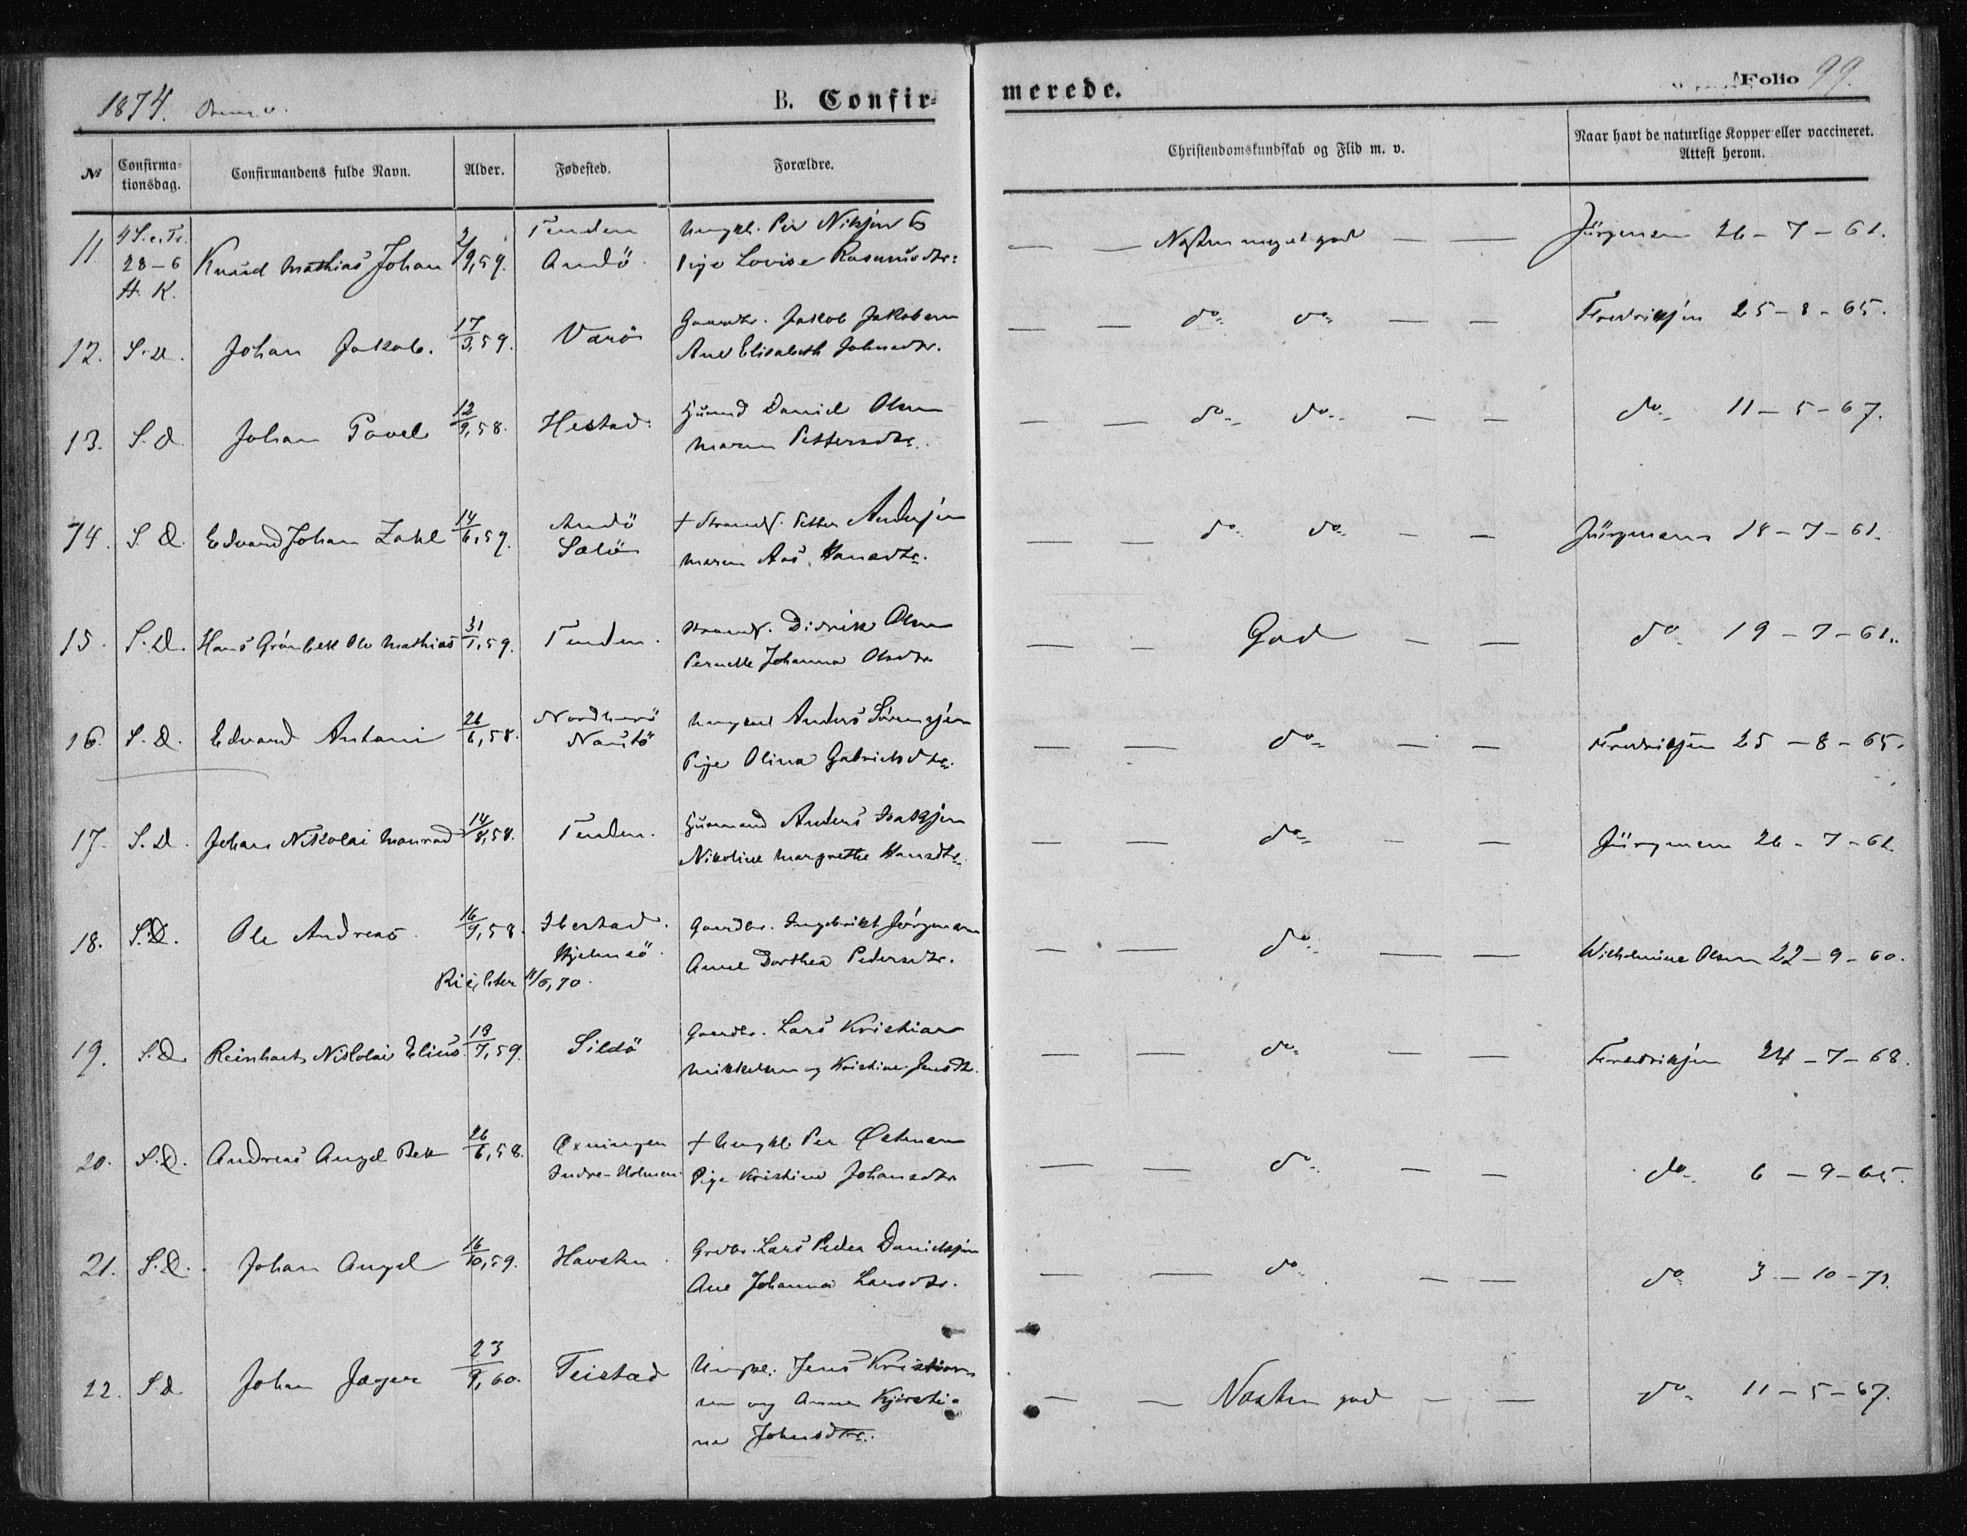 1874.
B. Confir-
merede.
Folio 99.
№
Confirma-
tionsdag.
Confirmandens fulde Navn.
Alder.
Fødested.
Forældre.
Christendomskundskab og Flid m. v.
Naar havt de naturlige Kopper eller vaccineret.
Attest herom.
11
4 S. e. Tr.
28-6
H. K.
Knud Mathias Johan
2/9, 59.
Tenden
Andö
Ungkl. Per
Pige Lovise Rasmusdtr:
— — Næsten meget god — —
Jürgensen 26-7-61.
12. S. D. Johan Jakob. 17/3, 59. Varö
Gaardbr. Jakob Jakobsen
Ane Elisabeth Johnsdtr.
— — do do — —
Fredriksen 25-8-65.
13. S. D. Johan Povel 12/9, 58. Hestad.
Husmd Daniel Olsen
Maren Pettersdtr.
— — do do — —
do 11-5-67.
14. S. D. Edvard Johan Zahl 14/6, 59.
Andö
Salöen
+ Strands. Petter Andersen
Maren Aas. Hansdtr.
— — do do — —
Jürgensen 18-7-61.
15. S. D. Hans Grönbek Ole Mathias 31/1, 59. Tenden.
Strands. Didrik Olsen
Pernelle Johanna Olsdtr
— — God — —
do 19-7-61.
16. S. D. Edvard Antoni 26/6, 58.
Nordherö
Nautö
Ungkarl Anders Sörensen
Pige Olina Gabrielsdtr.
— — do — —
Fredriksen 25-8-65.
17. S. D. Johan Nikolai Monrad 14/8, 58. Tenden.
Husmand Anders Isaksen
Nikoline Margrethe Hansdtr.
— — do — —
Jürgensen 26-7-61.
18. S. D. Ole Andreas 16/9, 58.
Ibestad.
Hjelmsö.
Gaardbr. Ingebrikt Jörgensen
Anne Dorthea Pedersdtr.
— — do — —
Wilhelmine Olsen 22-9-60.
19. S. D. Reinhart Nikolai Elius 19/7, 59. Sildö
Gaardbr. Lars Kristian
Mikkelsen og Kristine Jensdtr.
— — do — —
Fredriksen 24-7-68.
20. S. D. Andreas Angel Bek 26/6, 58.
Øxningen
Indre-Holmen.
+ Ungkl. Per Østman
Pige Kristine Johansdtr
— — do — —
do 6-9-65.
21. S. D. Johan Angel 16/10, 59. Havsten.
Grdbr. Lars Peder Danielsen
Ane Johanna Larsdtr.
— — do — —
do 3-10-71.
22. S. D Johan Jæger 23/9, 60. Teistad
Ungkl. Jens Kristian-
sen og Anna Kjersti-
na Johnsdtr.
— — Næsten god — —
do 11-5-67.